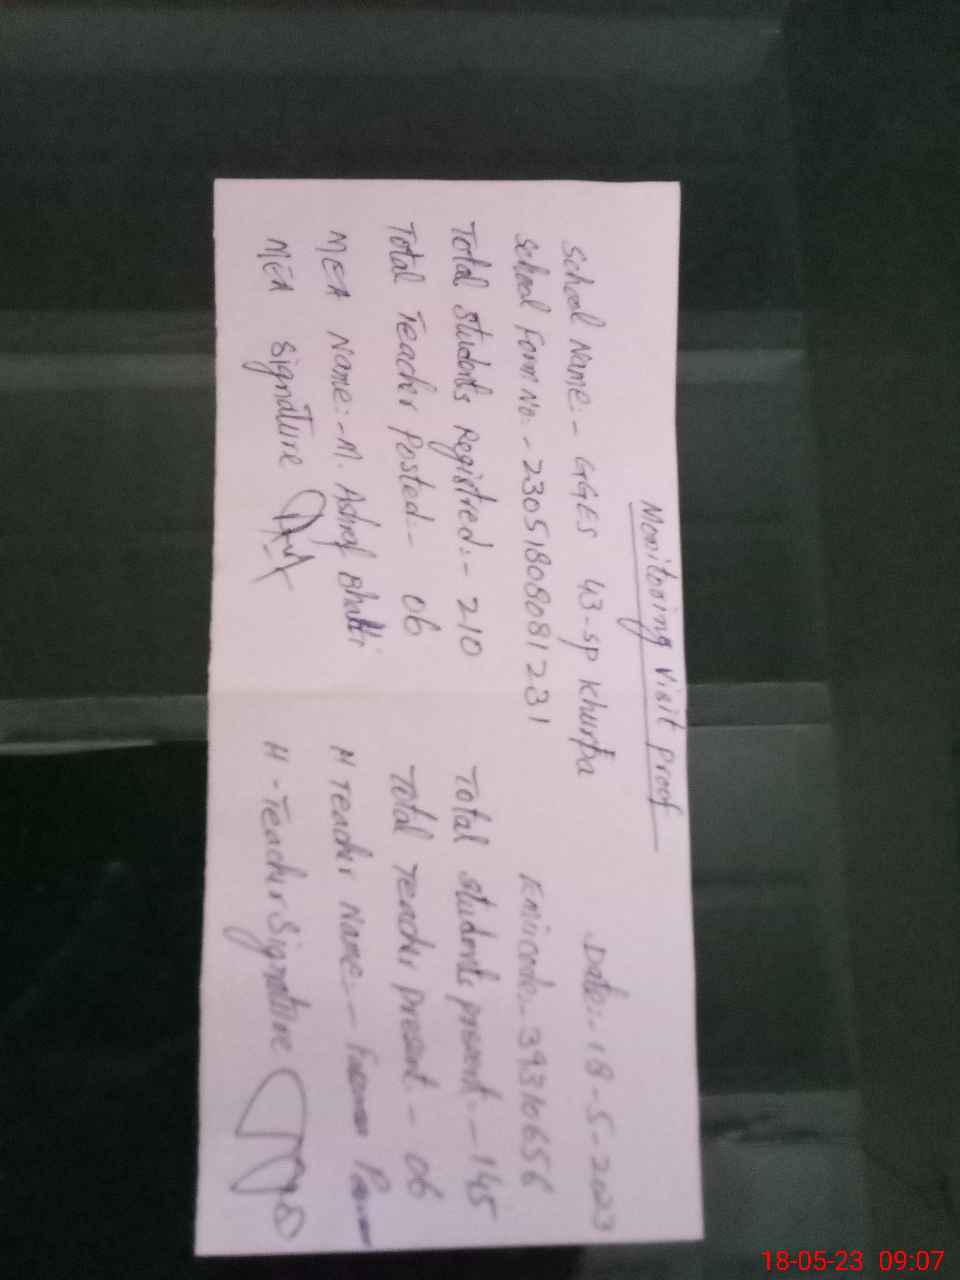 Monitoring Visit Proof
School Name:- GGES 43-SP Khurpa Date:- 18-5-2023
School Form No:- 23051808081231 Emiscode- 39310656
Total Students Registred:- 210 Total Students present:- 145
Total Teacher Posted:- 06 Total Teacher Present- 06
MEA Name:- M. Ashraf Bhatti H Teacher Name:-
MEA Signature H-Teacher Signature
18-05-23 09:07